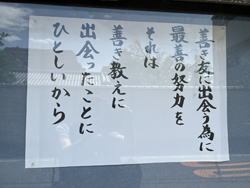 善き友に出会う為に
最善の努力を
それは
善き教えに
出会ったことに
ひとしいから